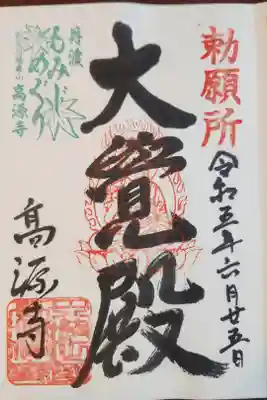 勅願所
令和五年六月廿五日
大覺殿
丹波
もみぢ
めぐり
高源寺
高源寺